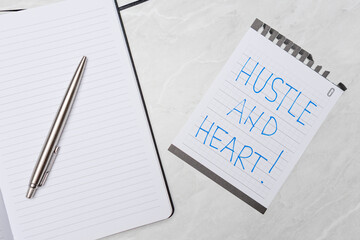 HUSTLE
AND
HEART!